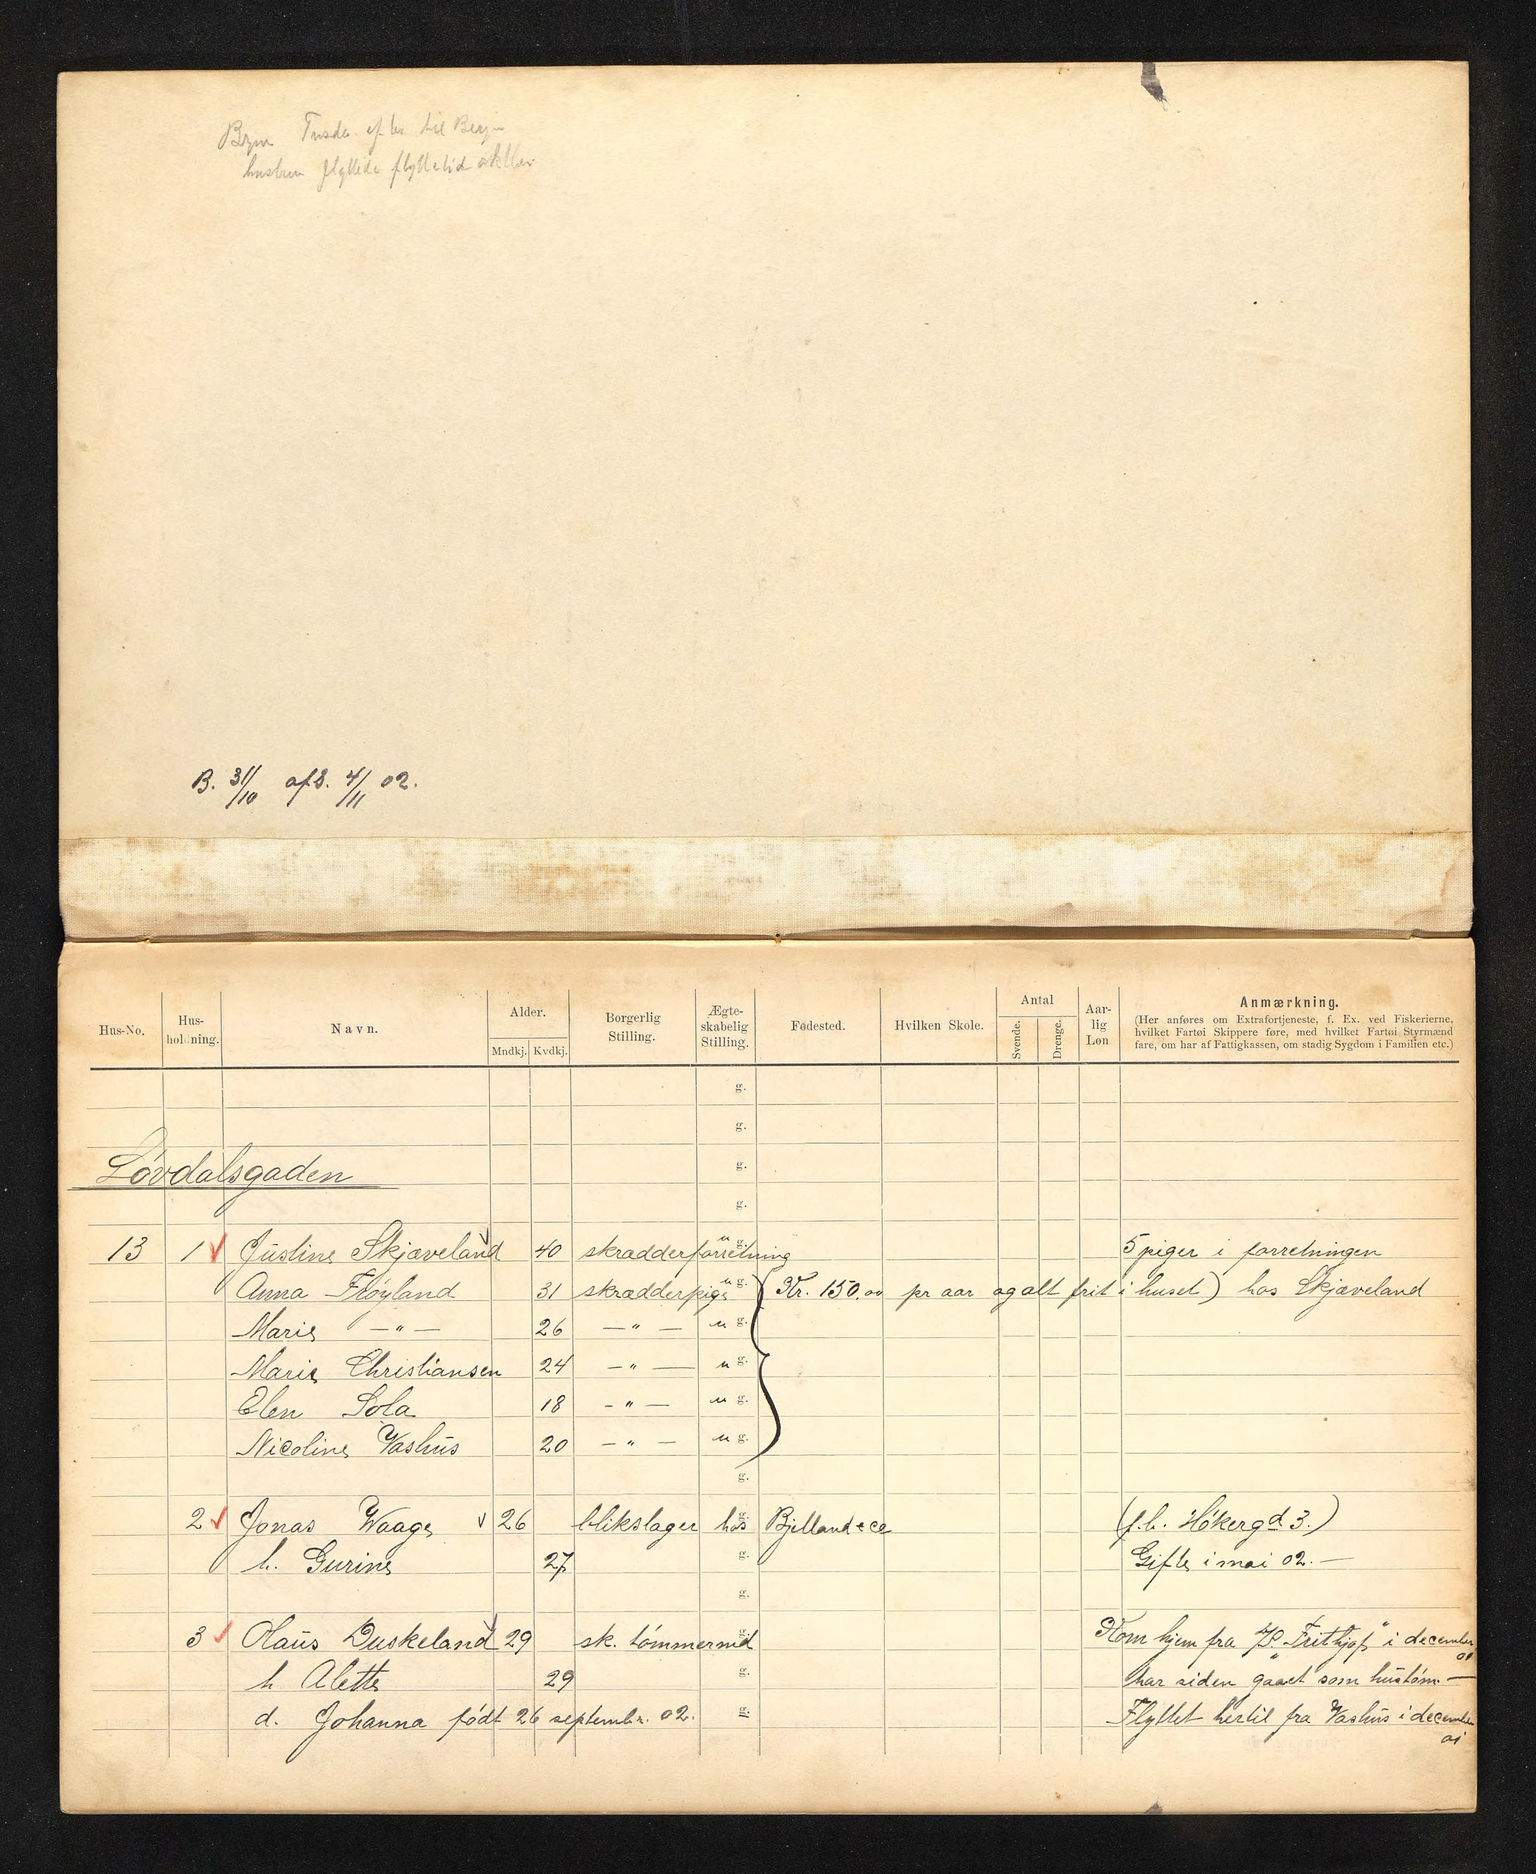 til
flyttede flyttetid
B. 31/10 afs. 4/11 02.
Hus-No. Hus-holdning. Navn. Alder. Mndkj. Kvdkj. Borgerlig Stilling. Ægte-skabelig Stilling. Fødested. Hvilken Skole. Antal Svende. Drenge. Aar-lig Løn Anmærkning.
(Her anføres om Extrafortjeneste, f. Ex. ved Fiskerierne,
hvilket Fartøi Skippere føre, med hvilket Fartøi Styrmænd
fare, om har af Fattigkassen, om stadig Sygdom i Familien etc.)
g.
g.
Løvdalsgaden g.
g.
13 1 Justine Skjæveland 40 skrædderforretning u g. 5 piger i forretningen
Anna Frøyland 31 skrædderpige u g. (Kr. 150.00 pr aar og alt frit i huset) hos Skjæveland
Marie — " — 26 — " — u g.
Marie Christiansen 24 — " — u g.
Elen Sola 18 — " — u g.
Nicoline Vashus 20 — " — u g.
g.
2 Jonas Waage 26 blikslager hos g. Bjelland & co (f.b. Høkergd 3.)
h. Gurine 27 g. Gifte i mai 02. —
g.
3 Olaus Duskeland 29 sk. tømmermd g. Kom hjem fra "Frithjof" i december 01
h Alette 29 g. har siden gaaet som hustøm. —
d. Johanna født 26 septembr. 02. g. Flyttet hertil fra Vashus i december 01